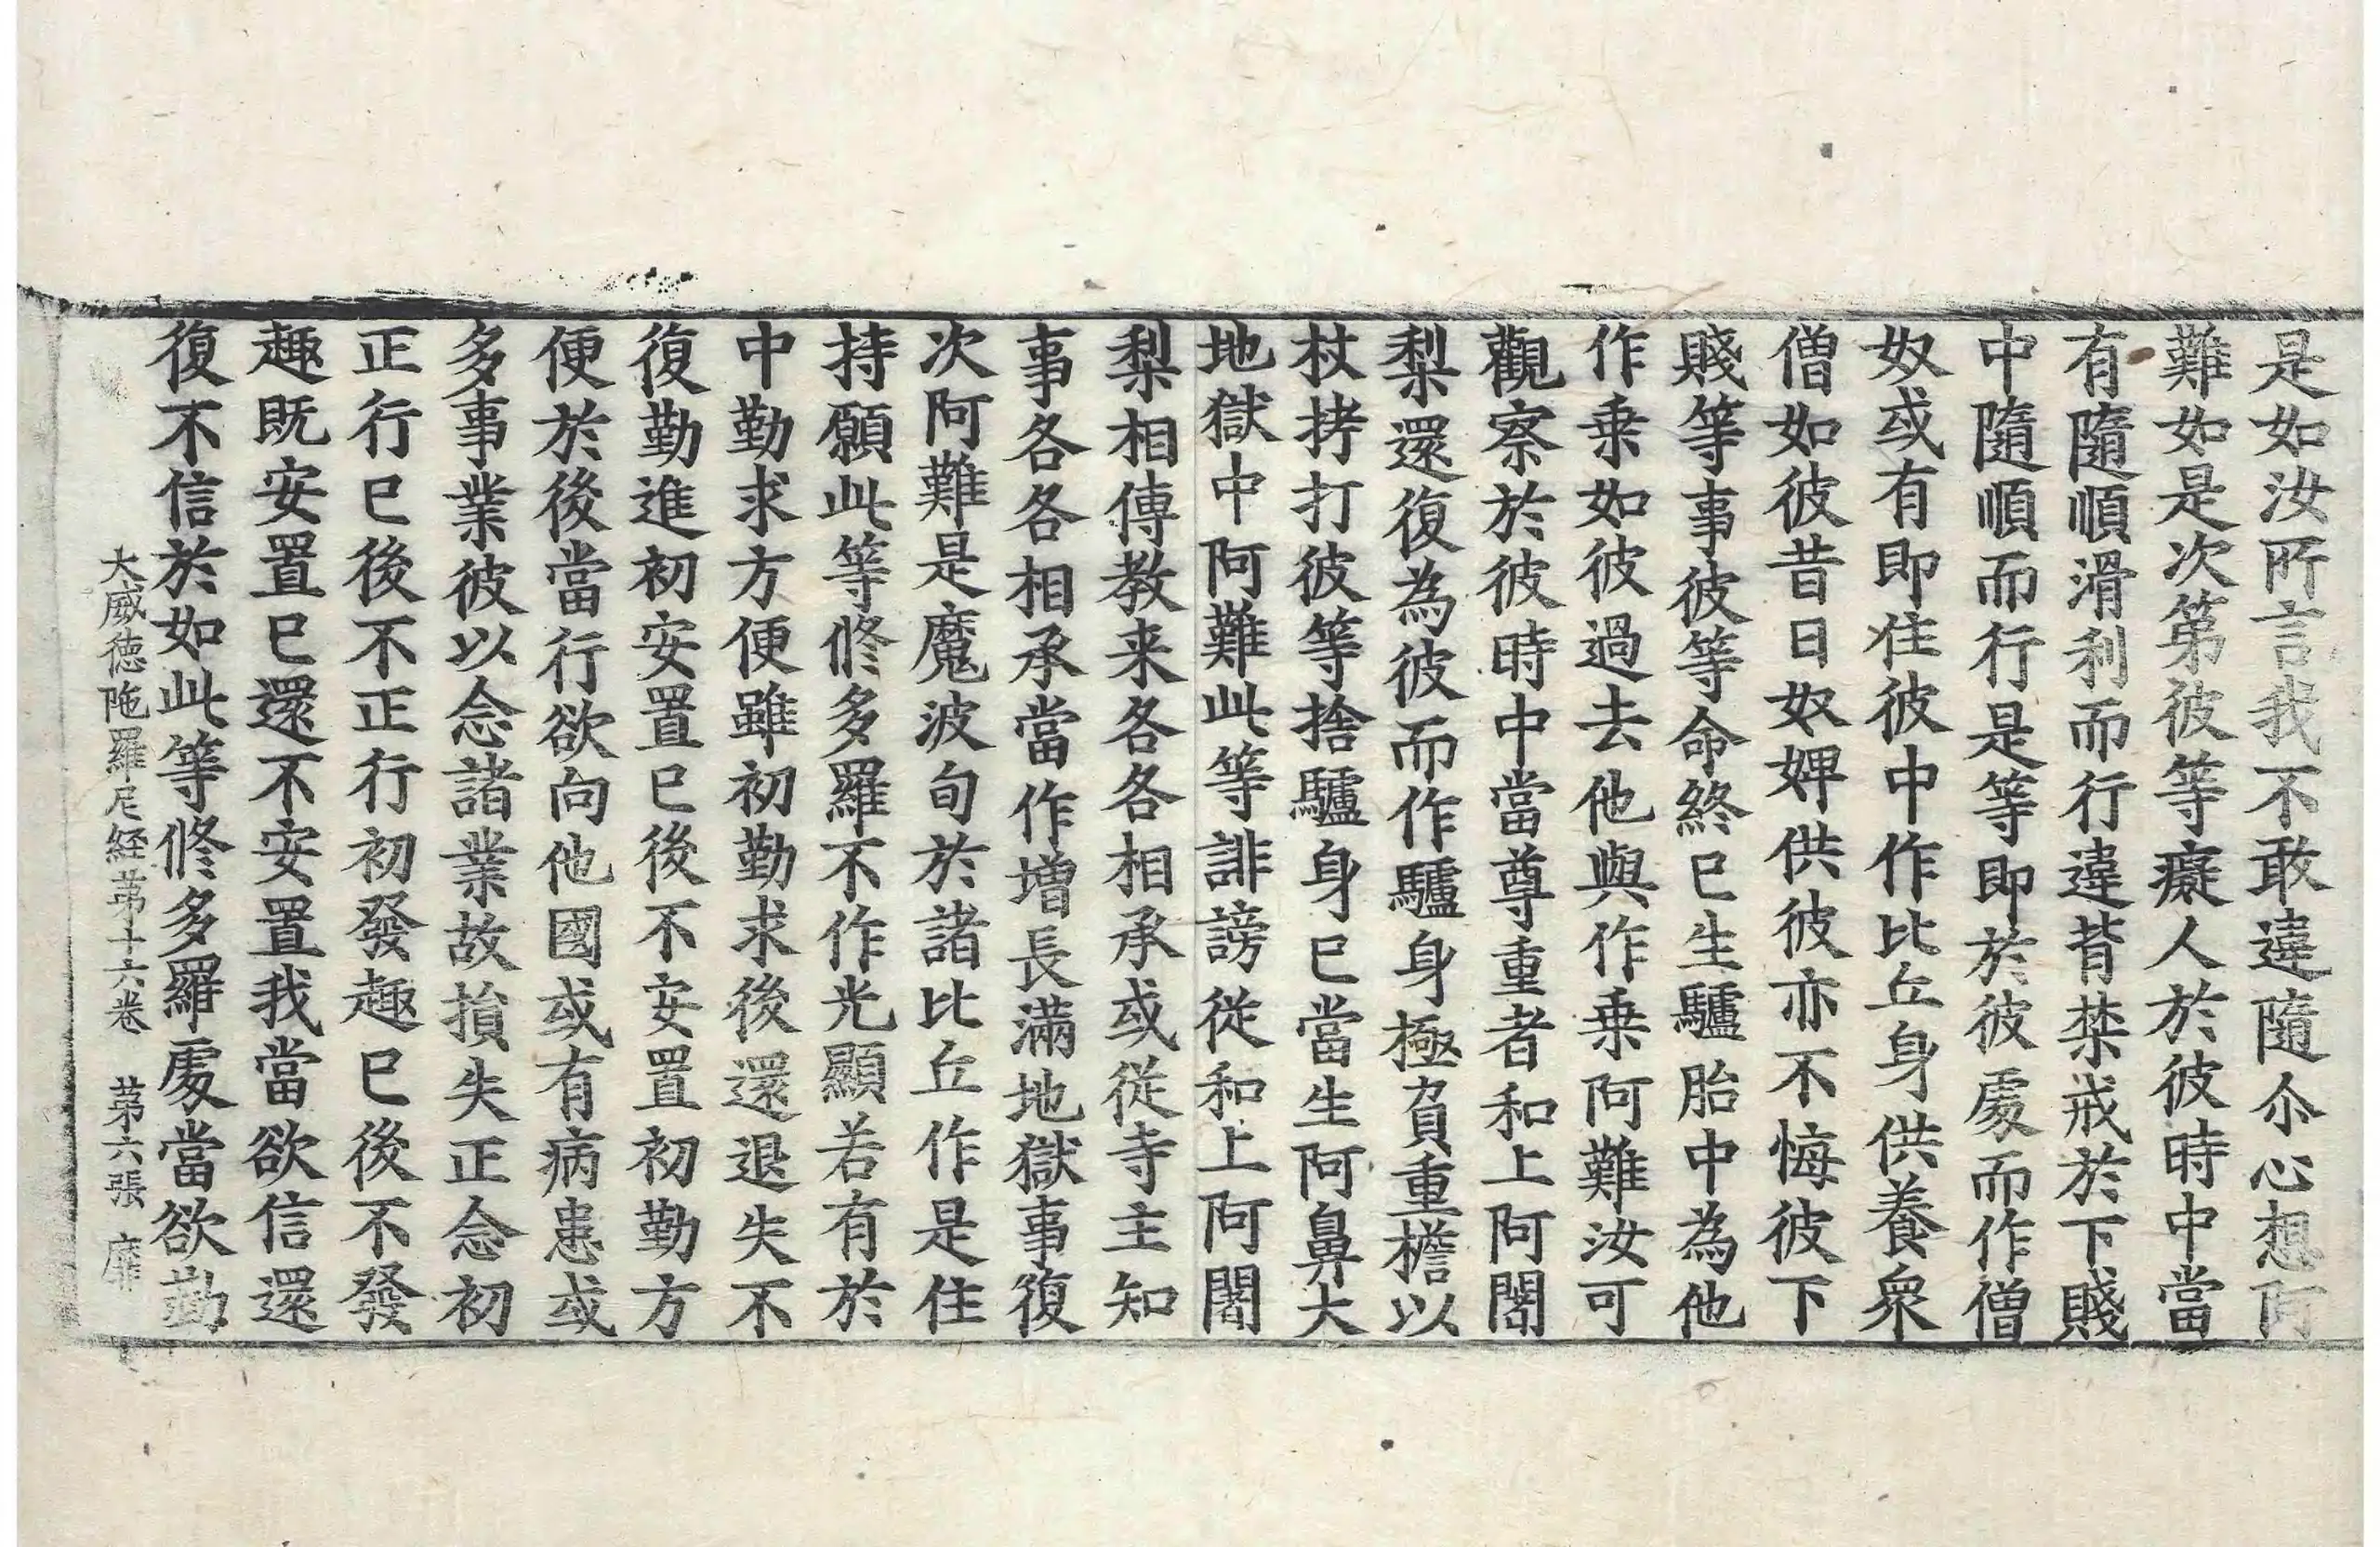 是如汝所言我不敢違隨尒心想阿
難如是次第彼等癡人於彼時中當
有隨順滑利而行違背禁戒於下賤
中隨順而行是等即於彼處而作僧
奴或有即往彼中作比丘身供養衆
僧如彼昔日奴婢供彼亦不悔彼下
賤等事彼等命終已生驢胎中為他
作乗如彼過去他與作乗阿難汝可
觀察於彼時中當尊重者和上阿闍
梨還復為彼而作驢身極負重檐以
杖拷打彼等捨驢身已當生阿鼻大
地獄中阿難此等誹謗從和上阿闍
梨相傳教来各各相承或從寺主知
事各各相承當作増長滿地獄事復
次阿難是魔波旬於諸比丘作是住
持願此等修多羅不作光顯若有於
中勤求方便雖初勤求後還退失不
復勤進初安置已後不安置初勤方
便於後當行欲向他國或有病患或
多事業彼以念諸業故損失正念初
正行已後不正行初發趣已後不發
趣既安置已還不安置我當欲信還
復不信於如此等修多羅處當欲勤
大威徳陁羅尼経苐十六卷 苐六張 靡